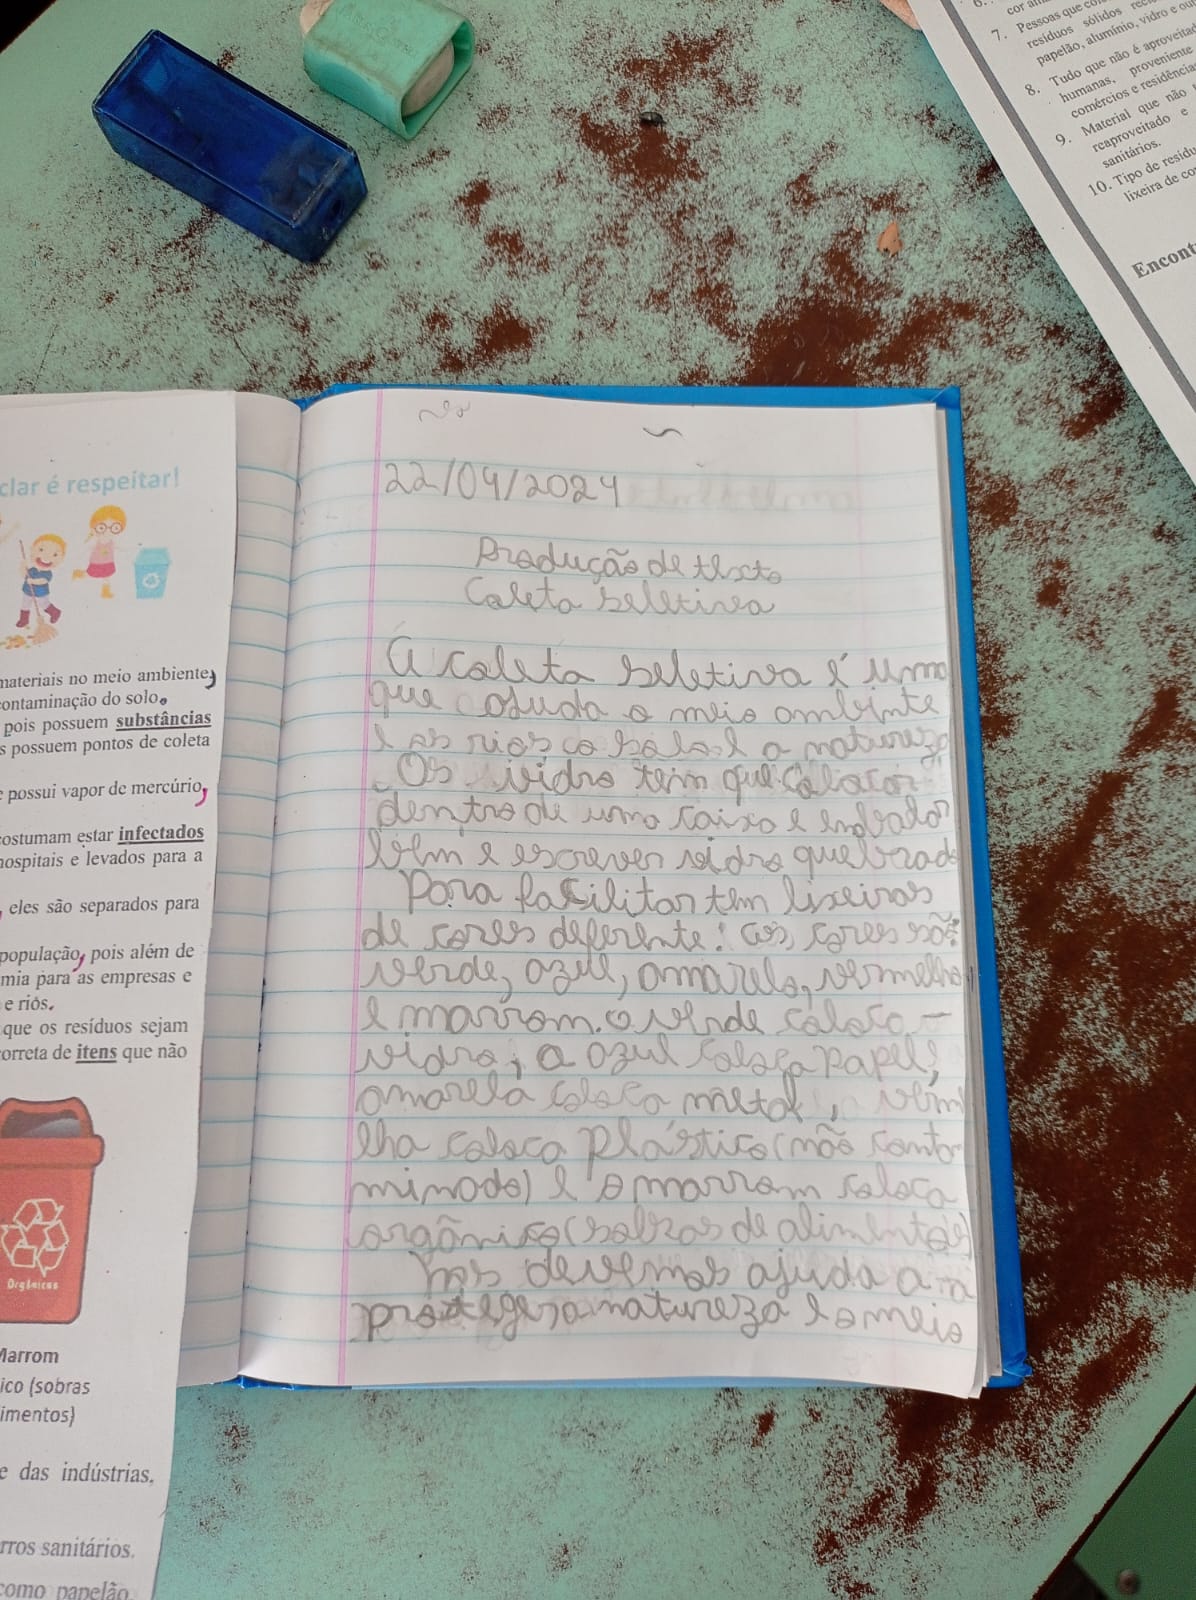 7. Pessoas que
resíduos sólidos
papelão, alumínio, vidro e
8. Tudo que não é
humanas, proveniente
comércios e
9. Material que não
reaproveitado e
sanitários.
10. Tipo de
lixeira de
clar é respeitar!
materiais no meio ambiente,
contaminação do solo.
pois possuem substâncias
s possuem pontos de coleta
possui vapor de mercúrio,
costumam estar infectados
hospitais e levados para a
, eles são separados para
população, pois além de
mia para as empresas e
e rios.
que os resíduos sejam
orreta de itens que não
Orgânicos
Marrom
ico (sobras
imentos)
e das indústrias.
rros sanitários.
como papelão
22/04/2024
Produção de texto
Coleta seletiva
A coleta seletiva é uma
que ajuda o meio
e os rios a natureza
Os vidro tem que colocar
dentro de uma caixa e
bem e escrever vidro quebrado
Para facilitar tem lixeiras
de cores deferente: as cores são:
verde, azul, amarelo, vermelho
e marrom. o verde coloca
vidro, a azul coloca papel,
amarela coloca metal, verm
lha coloca plástico (não conta
minado) e o marrom coloca
orgânico (sobras de alimentos)
Nos devemos ajuda a
proteger a natureza e o meio